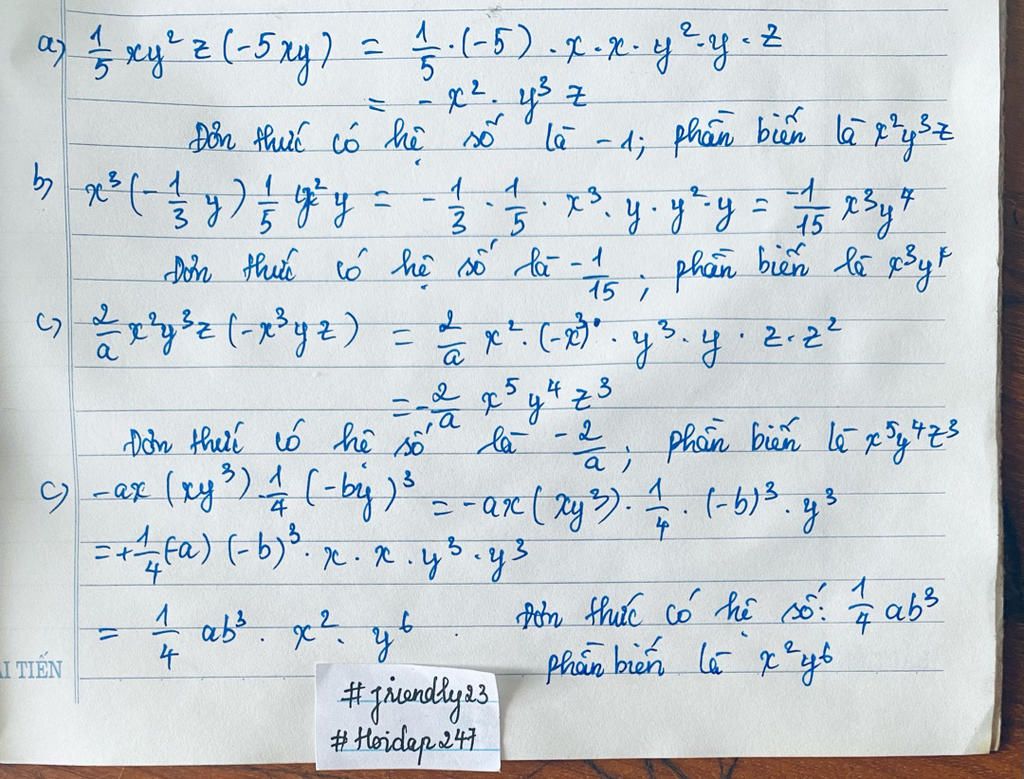 a) 1/5 xy² z (-5xy) = 1/5 · (-5) · x · x · y² · y · z
= - x² · y³ z
Đơn thức có hệ số là -1; phần biến là x²y³z
b) x³ (-1/3 y) 1/5 y² y = - 1/3 · 1/5 · x³ · y · y² · y = -1/15 x³y⁴
Đơn thức có hệ số là -1/15; phần biến là x³y⁴
c) 2/a x²y³z (-x³yz) = 2/a x² · (-x³) · y³ · y · z · z²
= -2/a x⁵ y⁴ z³
Đơn thức có hệ số là -2/a; phần biến là x⁵y⁴z³
c) -ax (xy³) · 1/4 (-by)³ = -ax (xy³) · 1/4 · (-b)³ · y³
= +1/4 (-a) (-b)³ · x · x · y³ · y³
= 1/4 ab³ · x² · y⁶ . Đơn thức có hệ số: 1/4 ab³
phần biến là x²y⁶
ẢI TIẾN
#friendly23
#Hoidap247